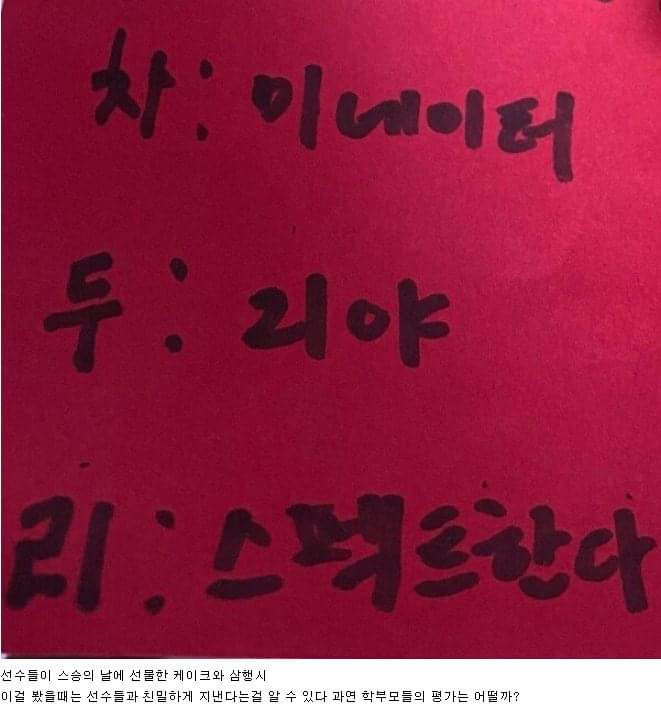 차: 미네이터
두: 리야
리: 스펙트한다
선수들이 스승의 날에 선물한 케이크와 삼행시
이걸 봤을때는 선수들과 친밀하게 지낸다는걸 알 수 있다 과연 학부모들의 평가는 어떨까?